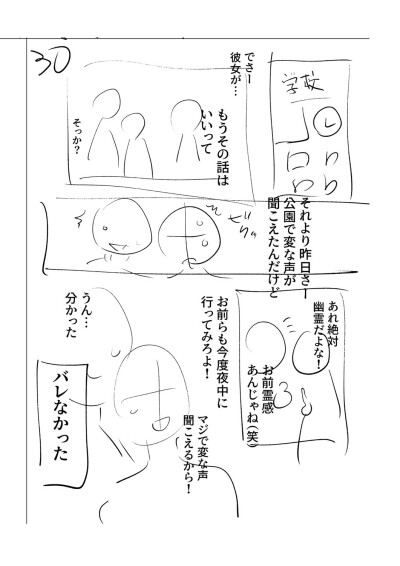 30
学校
でさー
彼女が…
もうその話は
いいって
そっか?
それより昨日さー
公園で変な声が
聞こえたんだけど
ぜり
あれ絶対
幽霊だよな!
お前霊感
あんじゃね(笑)
お前らも今度夜中に
行ってみろよ!
マジで変な声
聞こえるから!
うん…
分かった
バレなかった